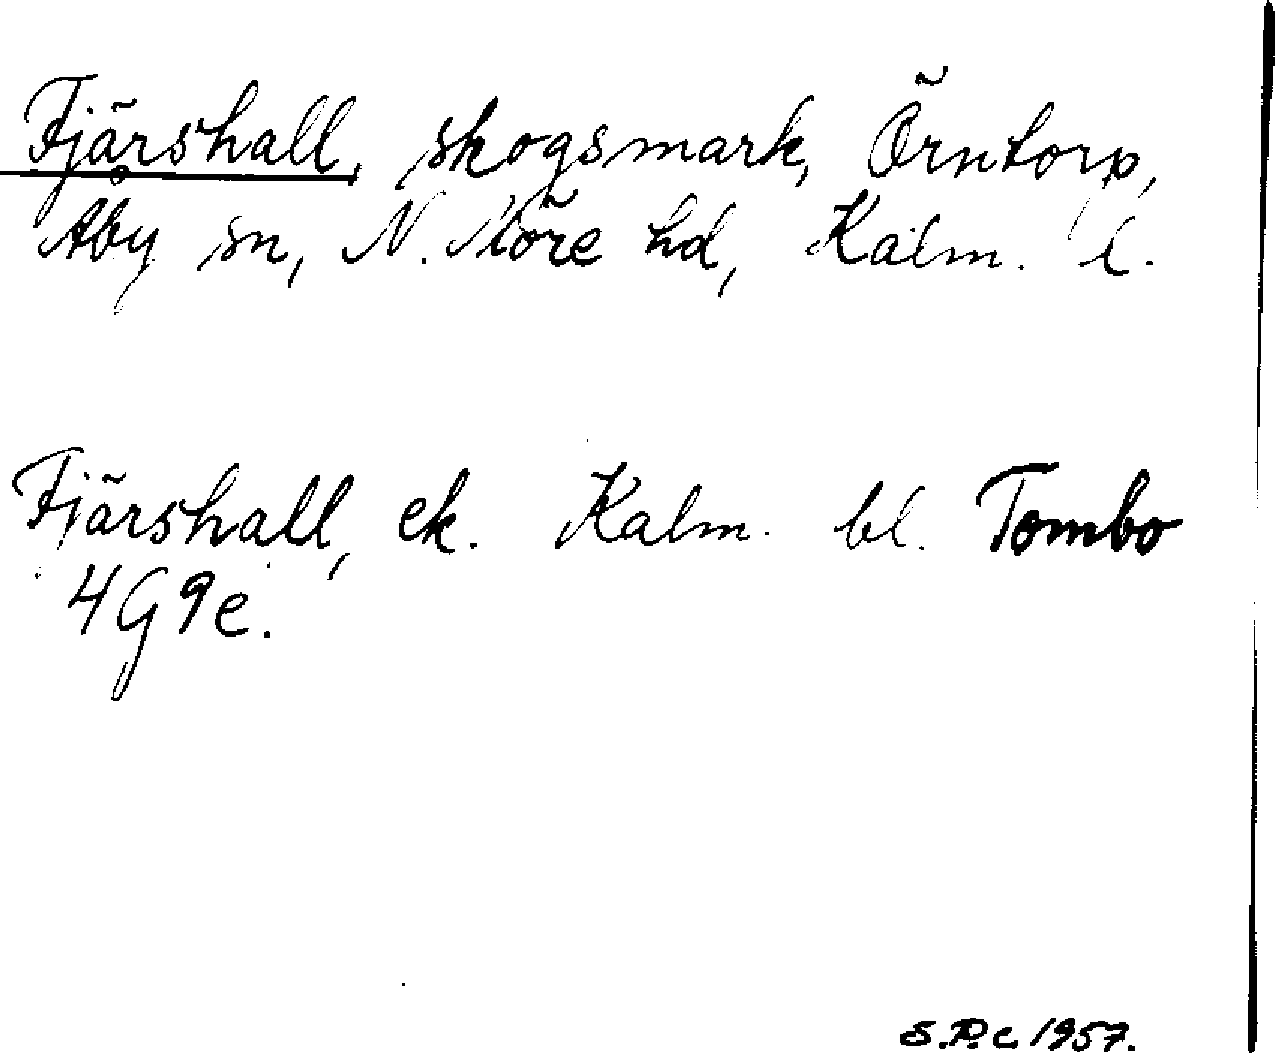 Fjärshall, skogsmark, Örntorp,
Åby sn, N. Möre hd, Kalm. l.
Fjärshall, ek. Kalm. bl. Tombo
4G9e.
S.P.c. 1957.